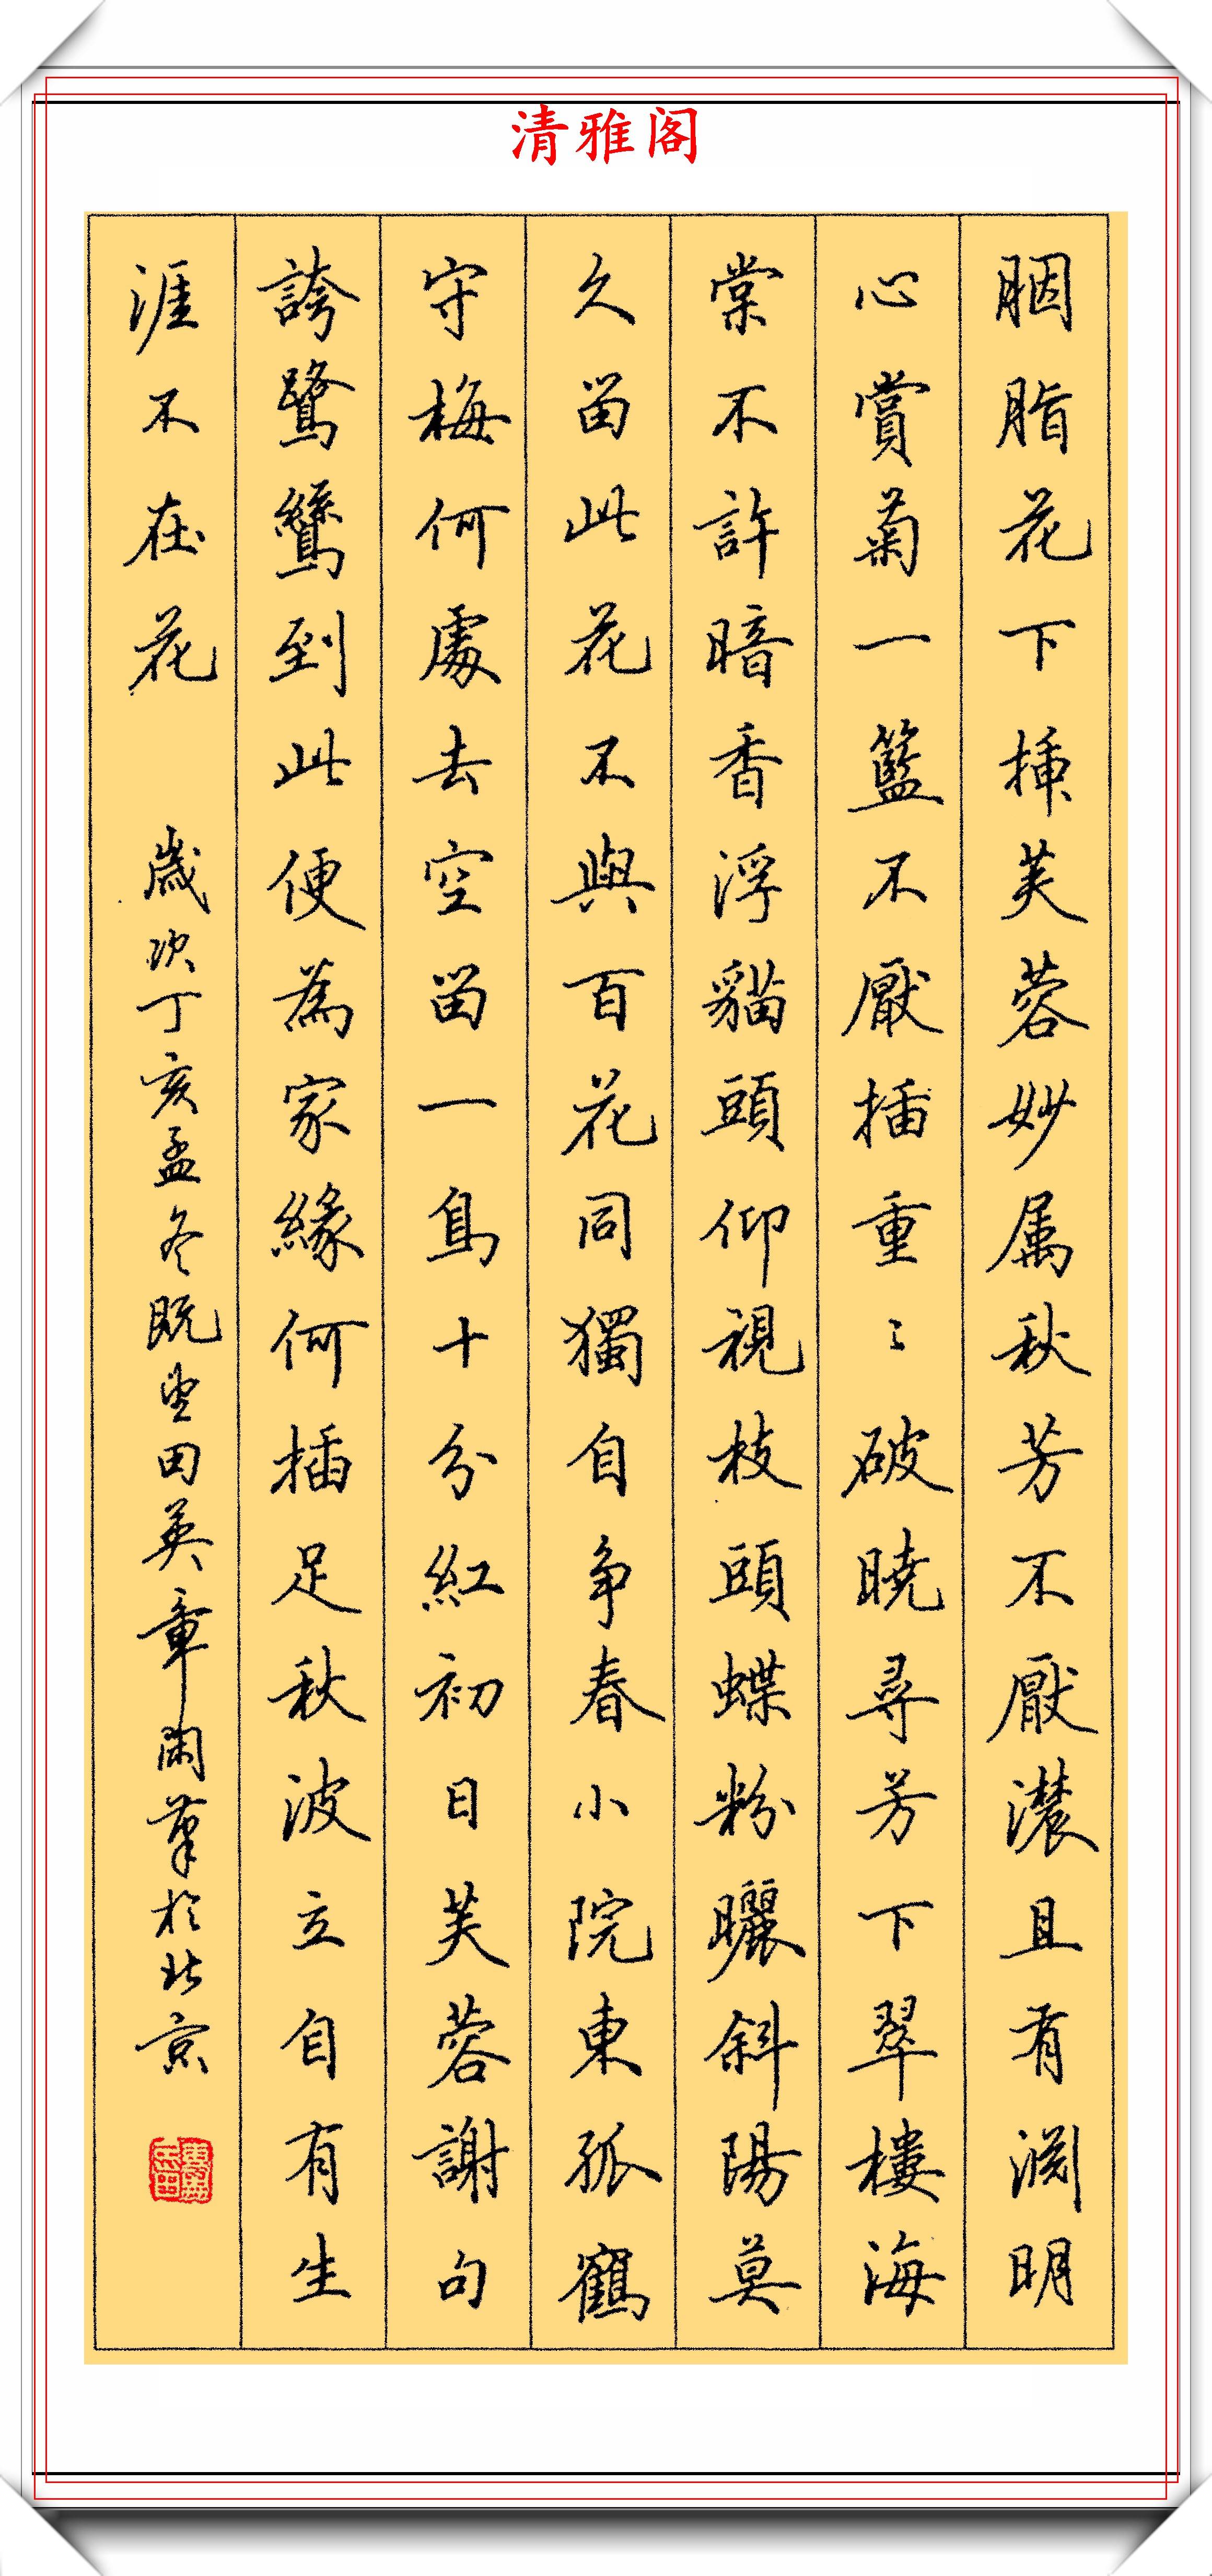 清雅阁
胭脂花下插芙蓉妙属秋芳不厭濃且有淵明
心賞菊一籃不厭插重〻破曉尋芳下翠樓海
棠不許暗香浮貓頭仰視枝頭蝶粉曬斜陽莫
久留此花不與百花同獨自争春小院東孤鶴
守梅何處去空留一鳥十分紅初日芙蓉謝句
誇鷺鸞到此便為家緣何插足秋波立自有生
涯不在花
歲次丁亥孟冬既望田英章閑筆於北京